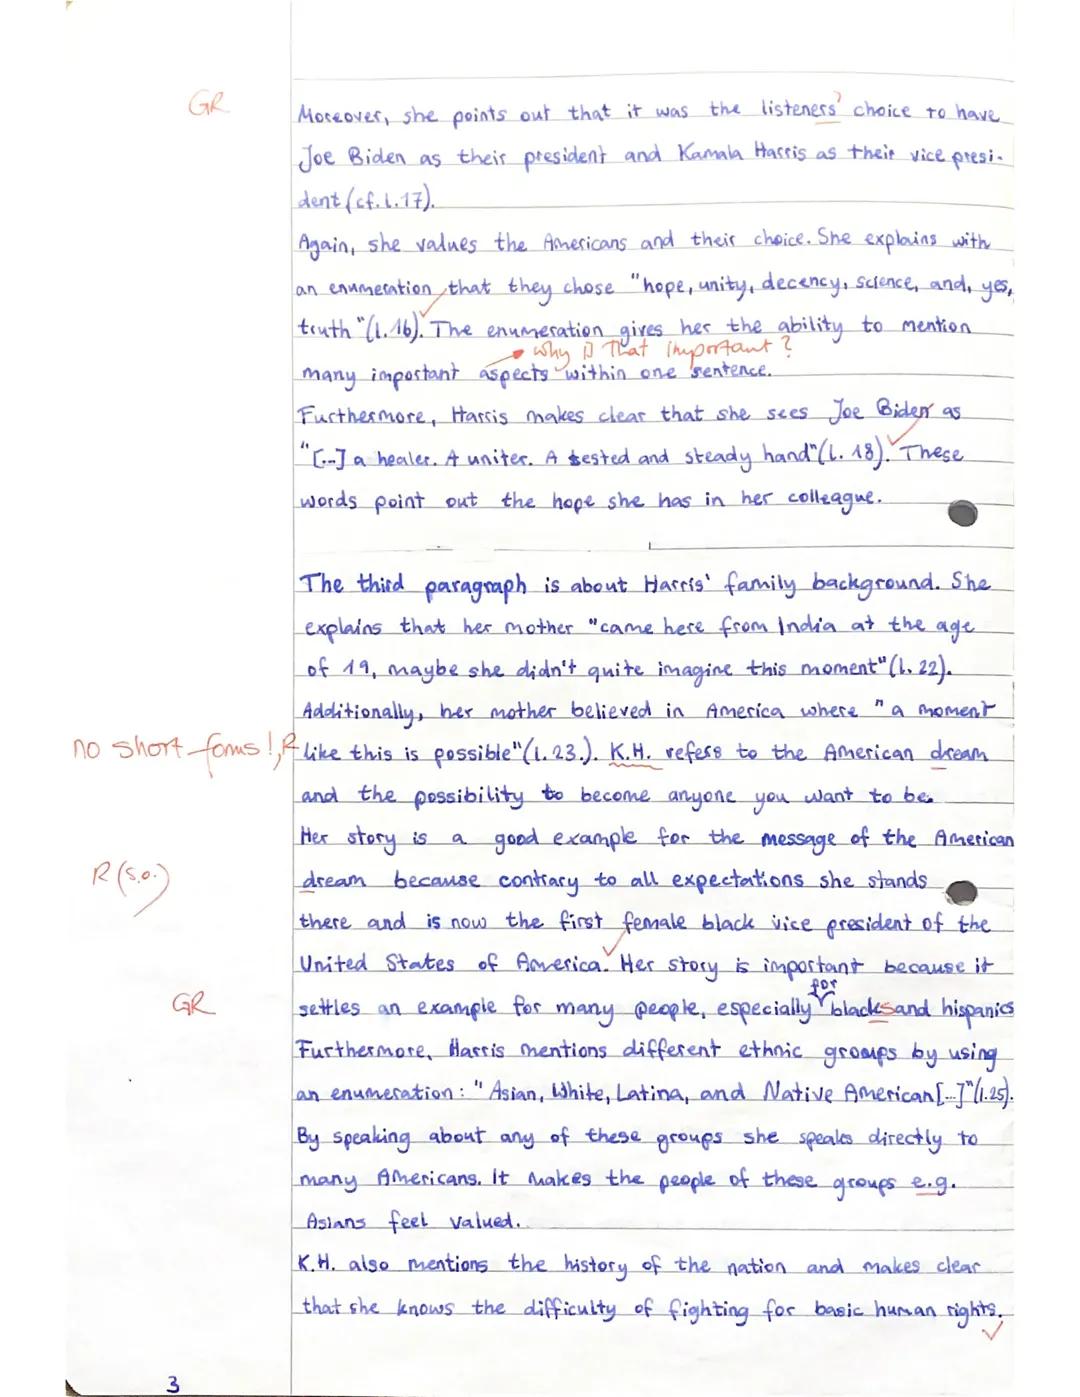 GR
Moreover, she points out that it was the listeners' choice to have
Joe Biden as their president and Kamala Harris as their vice presi-
dent (cf. l. 17).
Again, she values the Americans and their choice. She explains with
an enumeration that they chose "hope, unity, decency, science, and, yes,
truth" (l. 16). The enumeration gives her the ability to mention
why is that important?
many important aspects within one sentence.
Furthermore, Harris makes clear that she sees Joe Biden as
"[...] a healer. A uniter. A tested and steady hand" (l. 18). These
words point out the hope she has in her colleague.
The third paragraph is about Harris' family background. She
explains that her mother "came here from India at the age
of 19, maybe she didn't quite imagine this moment" (l. 22).
Additionally, her mother believed in America where "a moment
no short forms!, R like this is possible" (l. 23.). K.H. refers to the American dream
and the possibility to become anyone you want to be.
Her story is a good example for the message of the American
R (s.o.) dream because contrary to all expectations she stands
there and is now the first female black vice president of the
United States of America. Her story is important because it
for
GR settles an example for many people, especially blacks and hispanics
Furthermore, Harris mentions different ethnic groups by using
an enumeration: "Asian, White, Latina, and Native American [...]" (l. 25).
By speaking about any of these groups she speaks directly to
many Americans. It makes the people of these groups e.g.
Asians feel valued.
K.H. also mentions the history of the nation and makes clear
that she knows the difficulty of fighting for basic human rights.
3